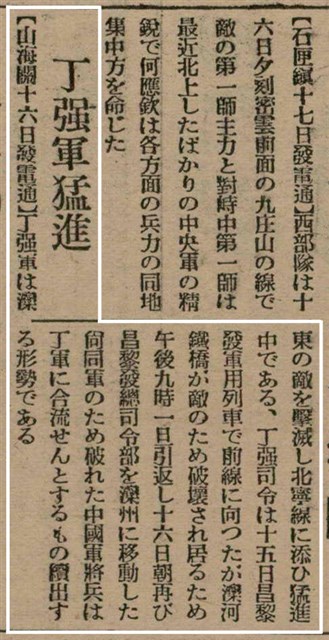 【石匣鎭十七日發電通】西部隊は十
六日夕刻密雲前面の九庄山の線で
敵の第一師主力と對峙中第一師は
最近北上したばかりの中央軍の精
銳で何應欽は各方面の兵力の同地
集中方を命じた
丁强軍猛進
【山海關十六日發電通】丁强軍は灤
東の敵を擊滅し北寧線に添ひ猛進
中である、丁强司令は十五日昌黎
發軍用列車で前線に向つたが灤河
鐵橋が敵のため破壞され居るため
午後九時一旦引返し十六日朝再び
昌黎發總司令部を灤州に移動した
尙同軍のため破れた中國軍將兵は
丁軍に合流せんとするもの續出す
る形勢である